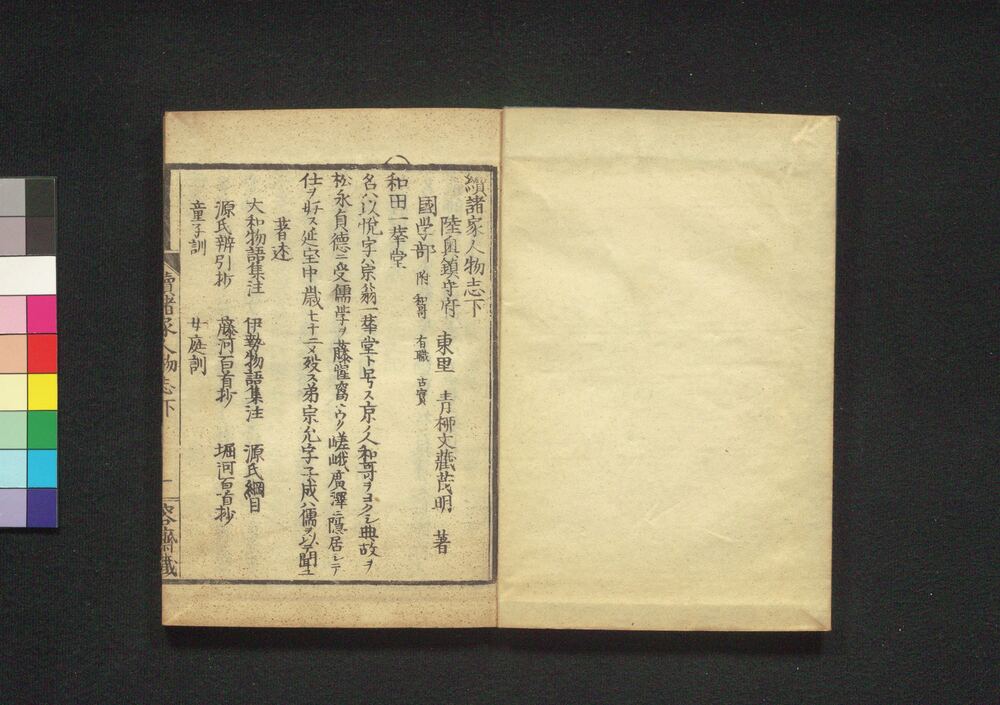 續諸家人物志下
陸奥鎮守府 東里 青柳文藏茂明 著
國学部 附 和哥 有職 古實
和田一華堂
名ハ以悦字ハ宗翁一華堂ト号ス京ノ人和哥ヲヨクシ典故ヲ
松永貞德ニ受儒学ヲ藤惺窩ニウク嵯峨廣澤ニ隠居シテ
仕ヲ好ス延宝中歳七十二ニメ歿ス弟宗允字子成ハ儒ヲ以テ聞ユ
著述
大和物語集注 伊勢物語集注 源氏綱目
源氏辨引抄 藤河百首抄 堀河百首抄
童子訓 女庭訓
續諸家人物志下 一